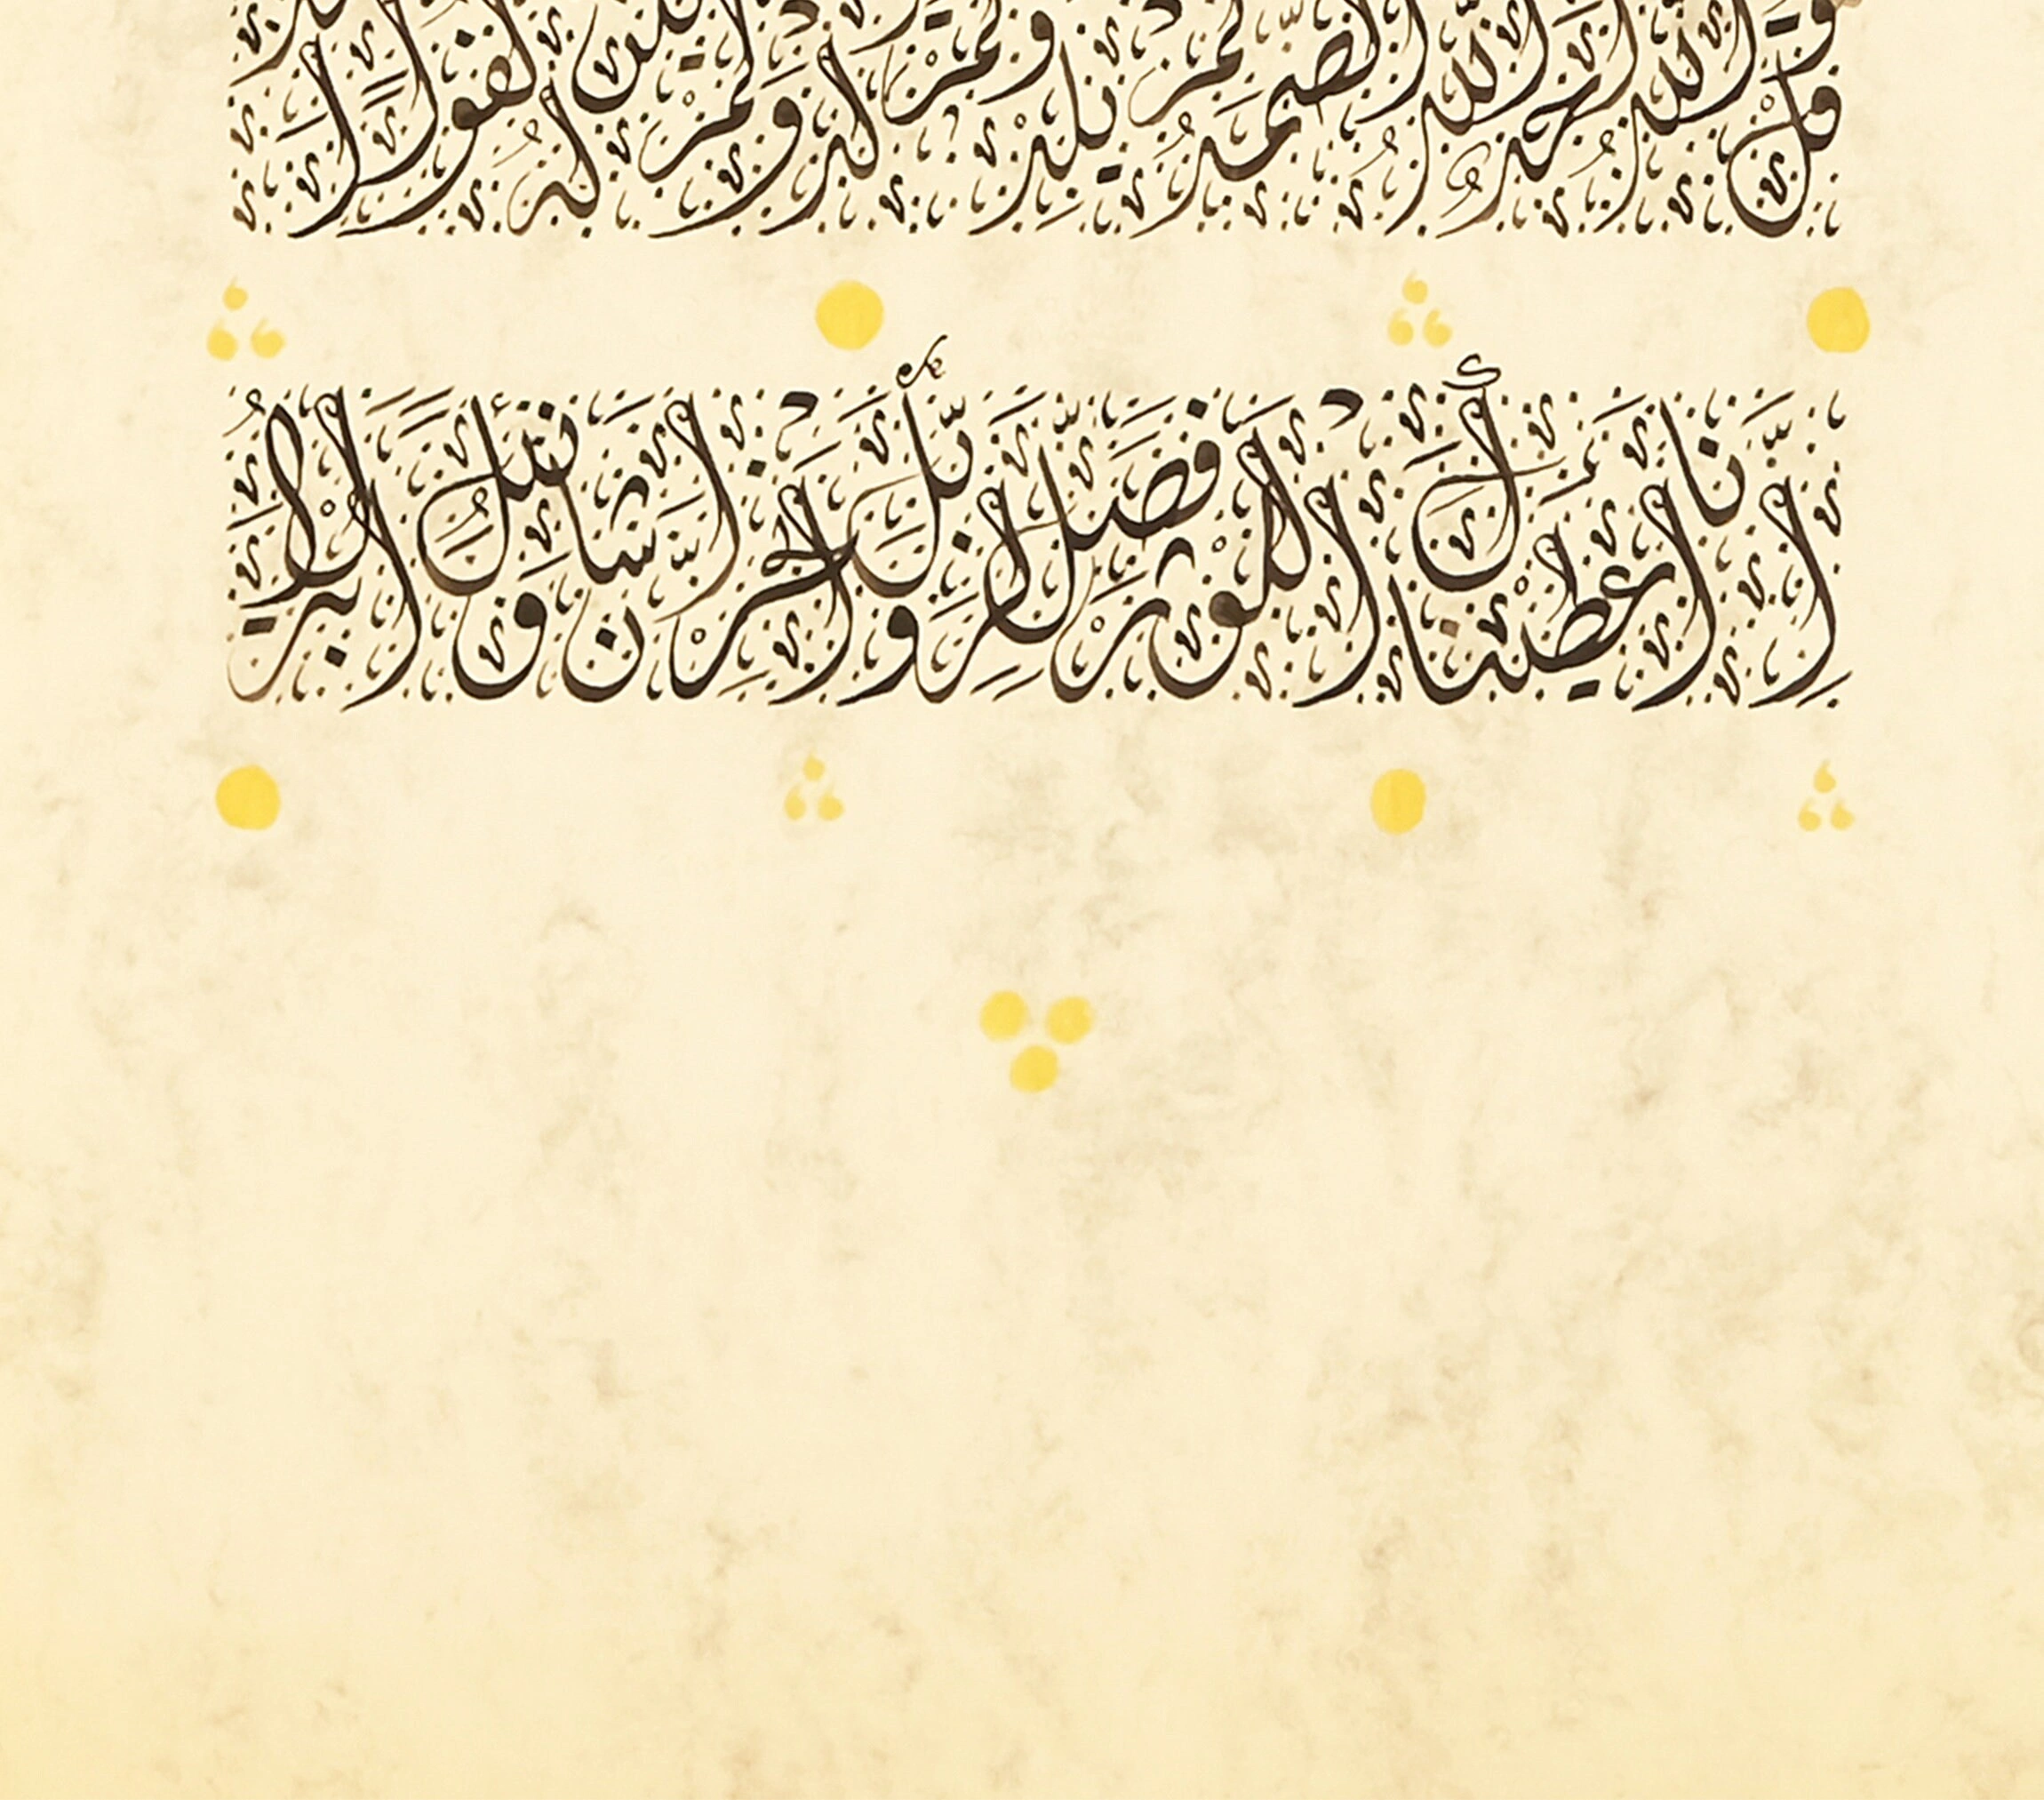 قل هو الله أحد الله الصمد لم يلد ولم يولد ولم يكن له كفوا أحد
إنا أعطيناك الكوثر فصل لربك وانحر إن شانئك هو الأبتر